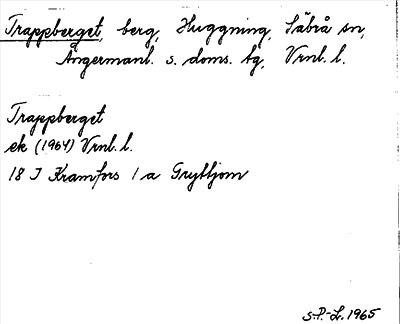 Trappberget, berg, Huggning, Säbrå sn,
Ångermanl. s. doms. tg, Vrnl. l.
Trappberget
ek (1964) Vrnl. l.
18 J Kramfors 1 a Gryttjom
S.P.-L. 1965